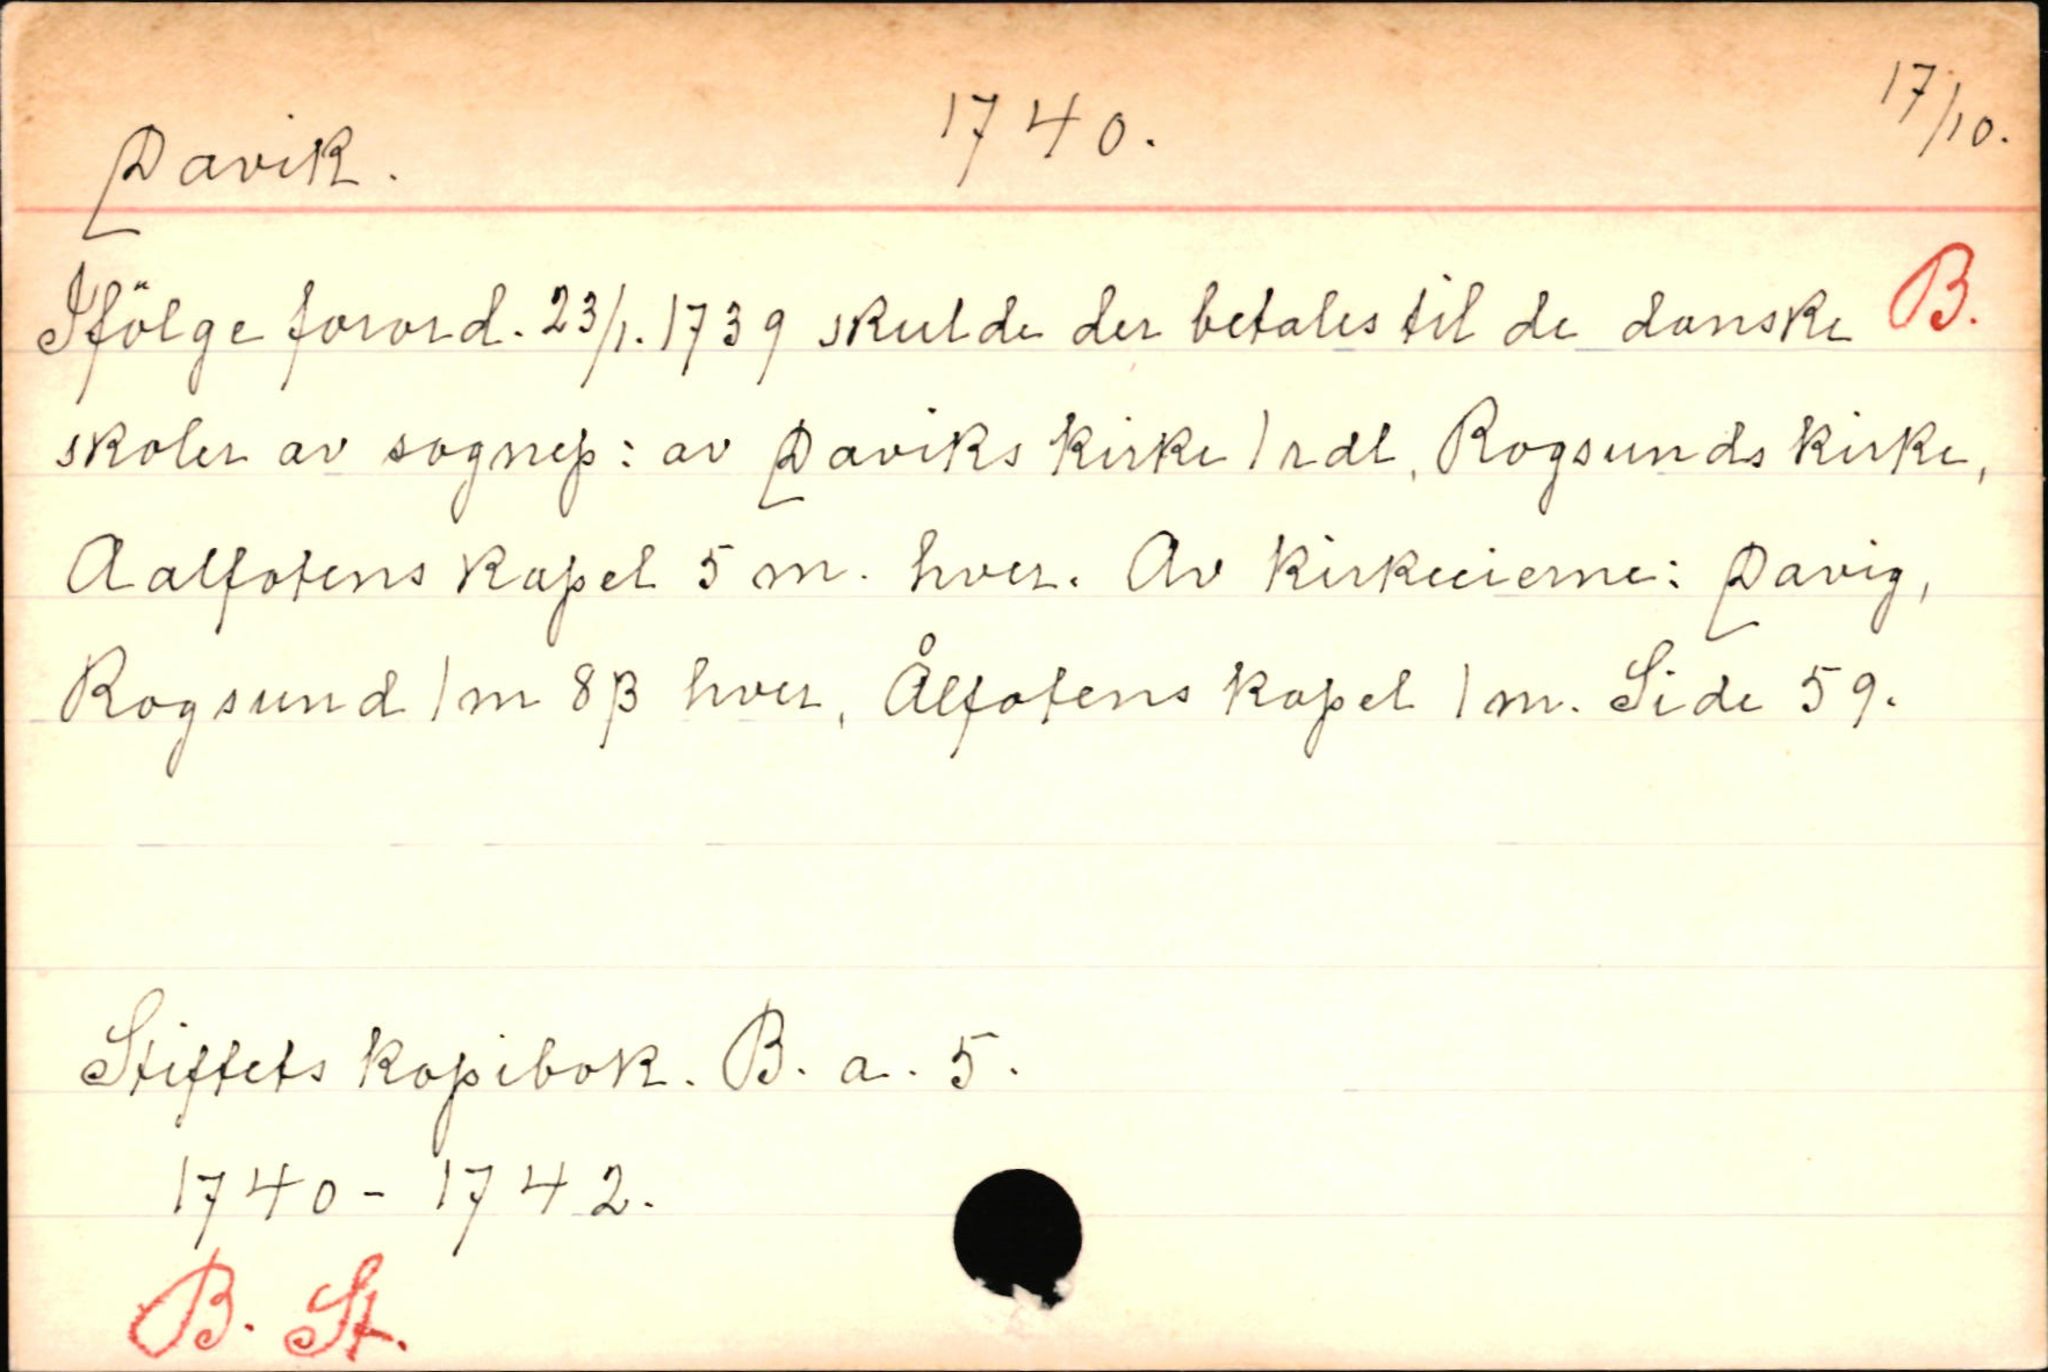 Davik. 1740. 17/10.
Ifölge forord. 23/1. 1739 skulde der betales til de danske B.
skoler av sognep: av Daviks kirke 1 rdl, Rogsunds kirke,
Aalfotens kapel 5 m. hver. Av kirkeeierne: Davig,
Rogsund 1 m 8 β hver, Ålfotens kapel 1 m. Side 59.
Stiftets kopibok. B. a. 5.
1740-1742.
B. St.